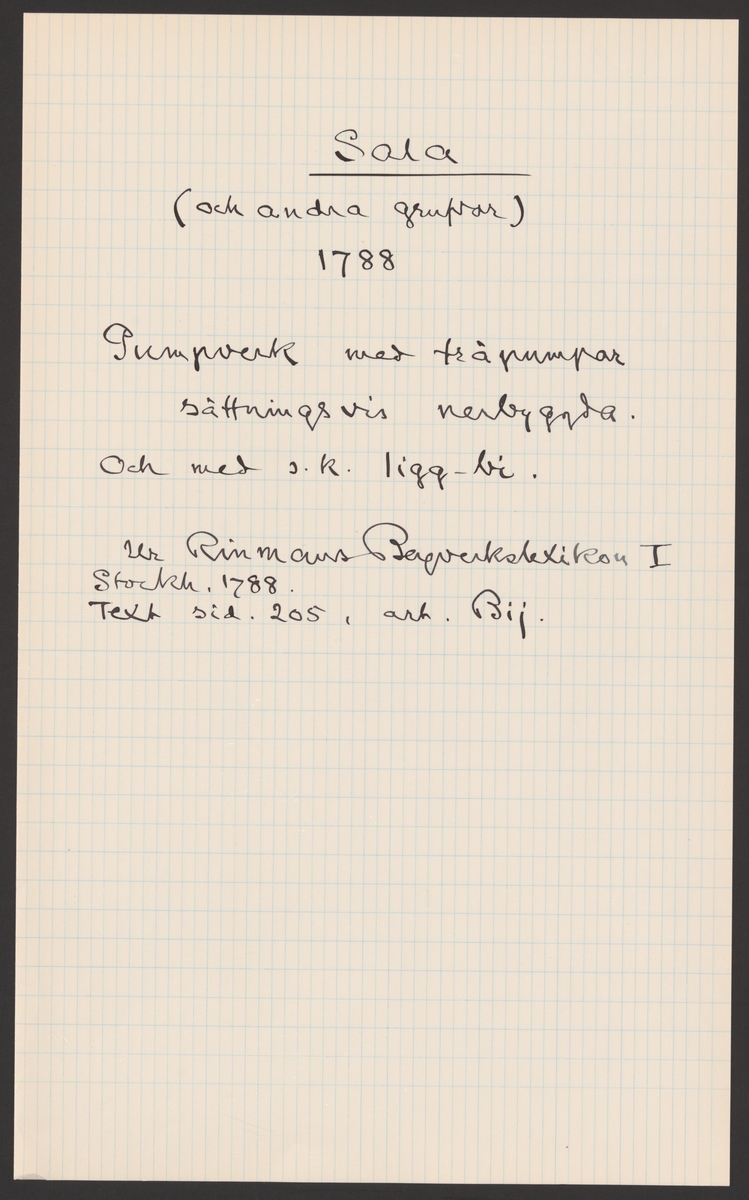 Sala
(och andra gruvor)
1788
Pumpverk med träpumpar
sättningsvis nerbyggda.
Och med s.k. ligg-bi.
Ur Rinmans Bergverkslexikon I
Stockh. 1788.
Text sid. 205, art. Bij.